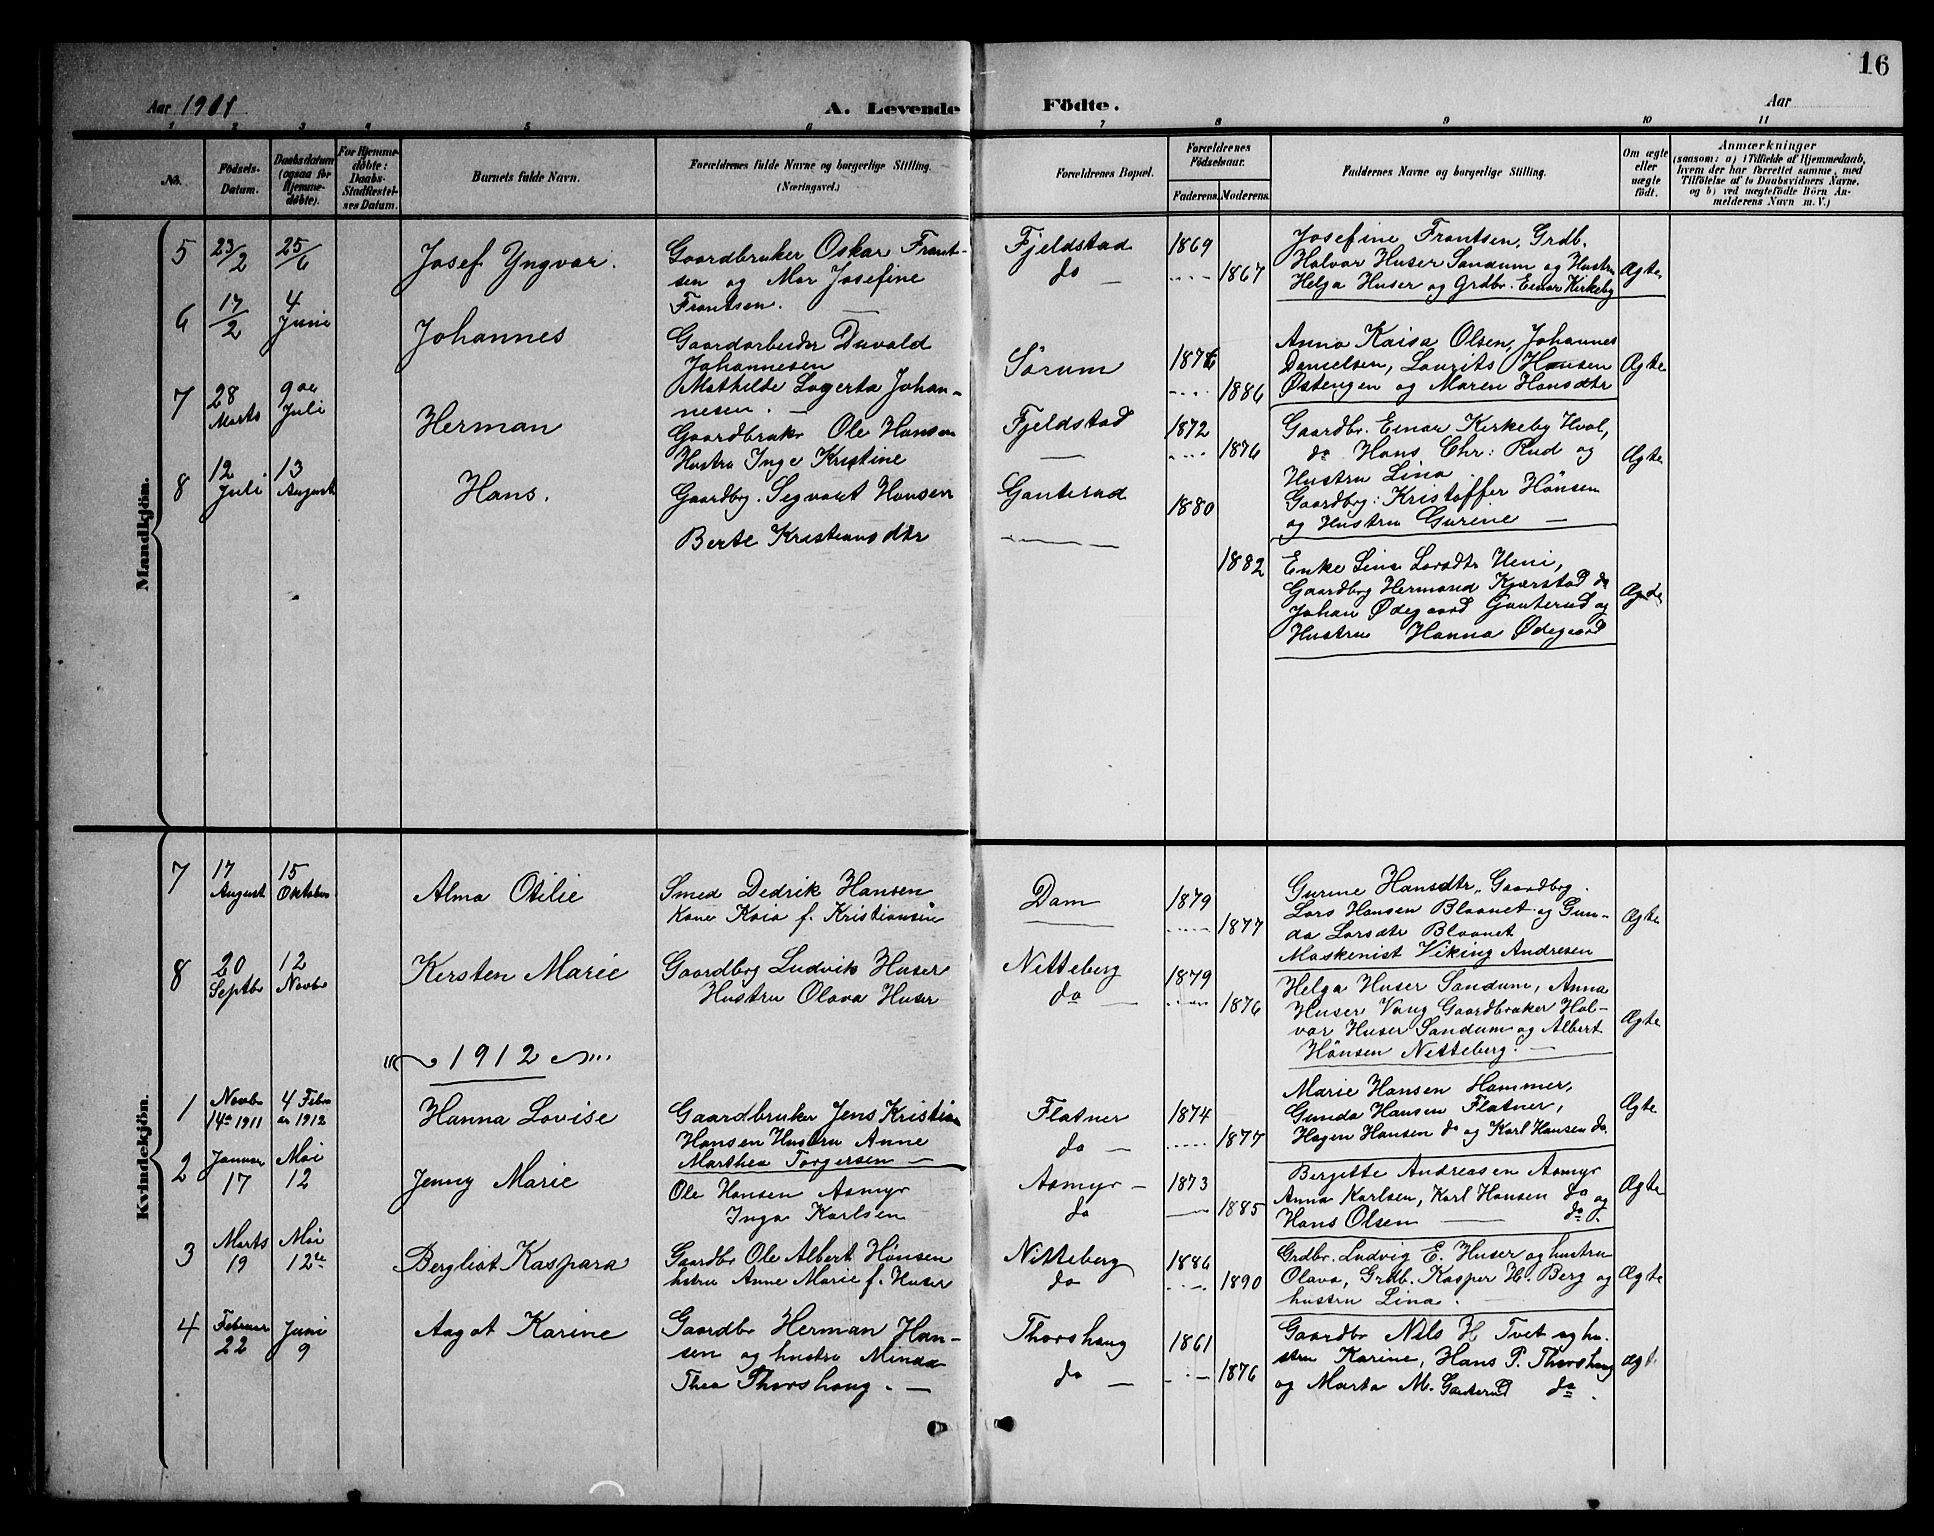 16
Aar 1911
A. Levende Födte.
Aar
1 2 3 4 5 6 7 8 9 10 11
No.
Födsels-
Datum.
Daabsdatum
(ogsaa for
Hjemme-
döbte).
For Hjemme-
döbte:
Daabs-
Stadfæstel-
ses Datum.
Barnets fulde Navn.
Forældrenes fulde Navne og borgerlige Stilling.
(Næringsvei.)
Forældrenes Bopæl.
Forældrenes
Födselsaar.
Faderens. Moderens.
Faddernes Navne og borgerlige Stilling.
Om ægte
eller
uægte
födt.
Anmærkninger
(saasom: a) i Tilfælde af Hjemmedaab,
hvem der har forrettet samme, med
Tilföielse af to Daabsvidners Navne,
og b) ved uægtefödte Börn An-
melderens Navn m. V.)
Mandkjön.
5 23/2 25/6 Josef Yngvar.
Gaardbruker Oskar Frant-
sen og Mor Josefine
Frantsen.
Fjeldstad
do
1869
1867
Josefine Frantsen, Grdb.
Halvar Huser Sandum og Hustru
Helga Huser og Grdbr. Einar Kirkeby
Ægte
6 17/2 4 Juni Johannes
Gaardarbeider Duvald
Johannesen
Mathilde Lagerta Johan-
nesen.
Sörum
1886
Anna Kaisa Olsen, Johannes
Danielsen, Laurits Hansen
Østengen og Maren Hansdtr
Ægte
7 28 Marts 9de Juli Herman
Gaardbrukr Ole Hansen
Hustru Inge Kristine
Fjeldstad
1872
1876
Gaardbr. Einar Kirkeby Hval,
do Hans Chr: Rud og
Hustru Lina
Gaardbrg: Kristoffer Hönsen
og Hustru Gurine
Ægte
8 12 Juli 13 August Hans.
Gaardbrg. Segvart Hansen
Berte Kristiansdtr
Ganterud
1880
1882
Enke Lina Larsdtr Heni,
Gaardbrg Hermand Kjærstad do
Johan Ødegaard Ganterud og
Hustru Hanna Ødegaard
Ægte
Kvindekjön.
7 17 August 15 Oktober Alma Otilie
Smed Dedrik Hansen
Kone Kaia f. Kristiansen
Dam
1879
1877
Gurine Hansdtr, Gaardbrg.
Lars Hansen Blaanet og Gun-
da Larsdtr Blaanet
Maskenist Viking Andresen
Ægte
8 20 Septbr 12 Novbr Kersten Marie
Gaardbrg Ludvik Huser
Hustru Olava Huser
Nitteberg
do
1879
1876
Helga Huser Sandum, Anna
Huser Vang Gaardbruker Hal-
var Huser Sandum og Albert
Hönsen Nitteberg.
Ægte
1912
1 Novbr 14de 1911 4 Febr 1912 Hanna Lovise
Gaardbruker Jens Kristian
Hansen Hustru Anne
Marthea Torgersen
Flatner
do
1874
1877
Marie Hansen Hammer,
Gunda Hansen Flatner,
Hagen Hansen do og Karl Hansen do.
Ægte
2 Januar 17 Mai 12 Jenny Marie
Ole Hansen Aamyr
Inga Karlsen
Aamyr
do
1873
1885
Bergitte Andreasen Aamyr
Anna Karlsen, Karl Hansen do og
Hans Olsen do.
Ægte
3 Marts 19 Mai 12te Bergliot Kaspara
Gaardbr Ole Albert Hönsen
hstru Anne Marie f. Huser
Nitteberg
do
1886
1890
Grdbr. Ludvig E. Huser og hustru
Olava, Grdb. Kasper H. Berg og
hustru Lina.
Ægte
4 Februar 22 Juni 9 Aagot Karine
Gaardbr Herman Han-
sen og hustru Minda
Thea Thorshaug.
Thorshaug
do
1861
1876
Gaardbr Nils H Tvet og hu-
stru Karine, Hans P. Thorshaug
og Marta M. Ganterud do.
Ægt.